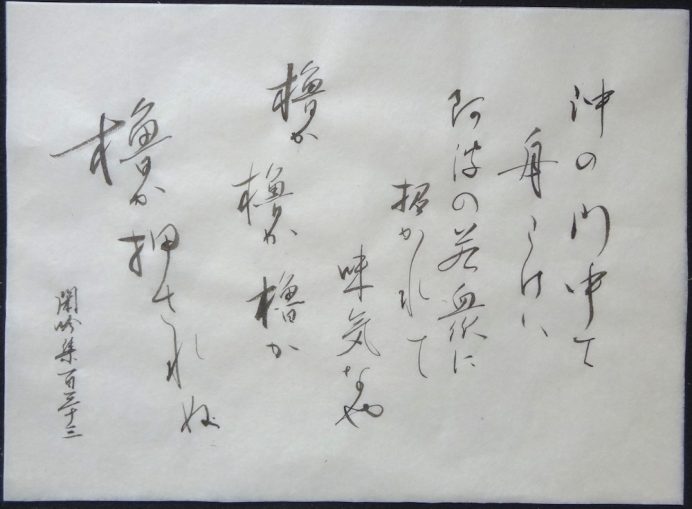 沖の門中て
舟こけは
阿波の若衆に
招かれて
味気なや
櫓か
櫓か櫓か
櫓か押されぬ
閑吟集百三十三